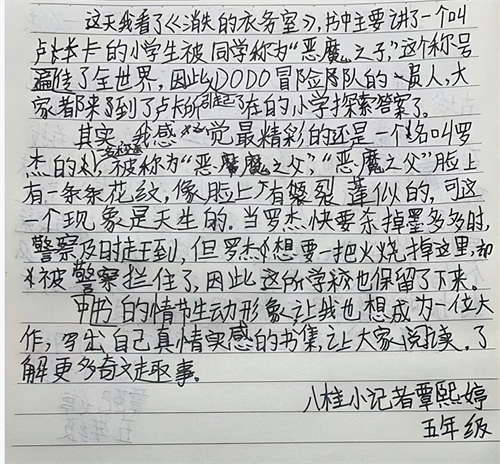 这天我看了《消失的医务室》,书中主要讲了一个叫
卢卡的小学生被同学称为“恶魔之子”,这个称号
遍传了全世界,因此DODO冒险队的人,大
家都来到了卢卡所在的小学探索答案了。
其实,我感觉最精彩的还是一个名叫罗
杰的被称为“恶魔之父”,“恶魔之父”脸上
有一条条花纹,像脸上有裂缝似的,可这
一个现象是天生的。当罗杰快要杀掉墨多多时,
警察及时赶到,但罗杰想要一把火烧掉这里,却
被警察拦住了,因此这所学校也保留了下来。
书的情节生动形象,让我也想成为一位大
作,写出自己真情实感的书集,让大家阅读。了
解更多奇文趣事。
八桂小记者覃熙婷
五年级